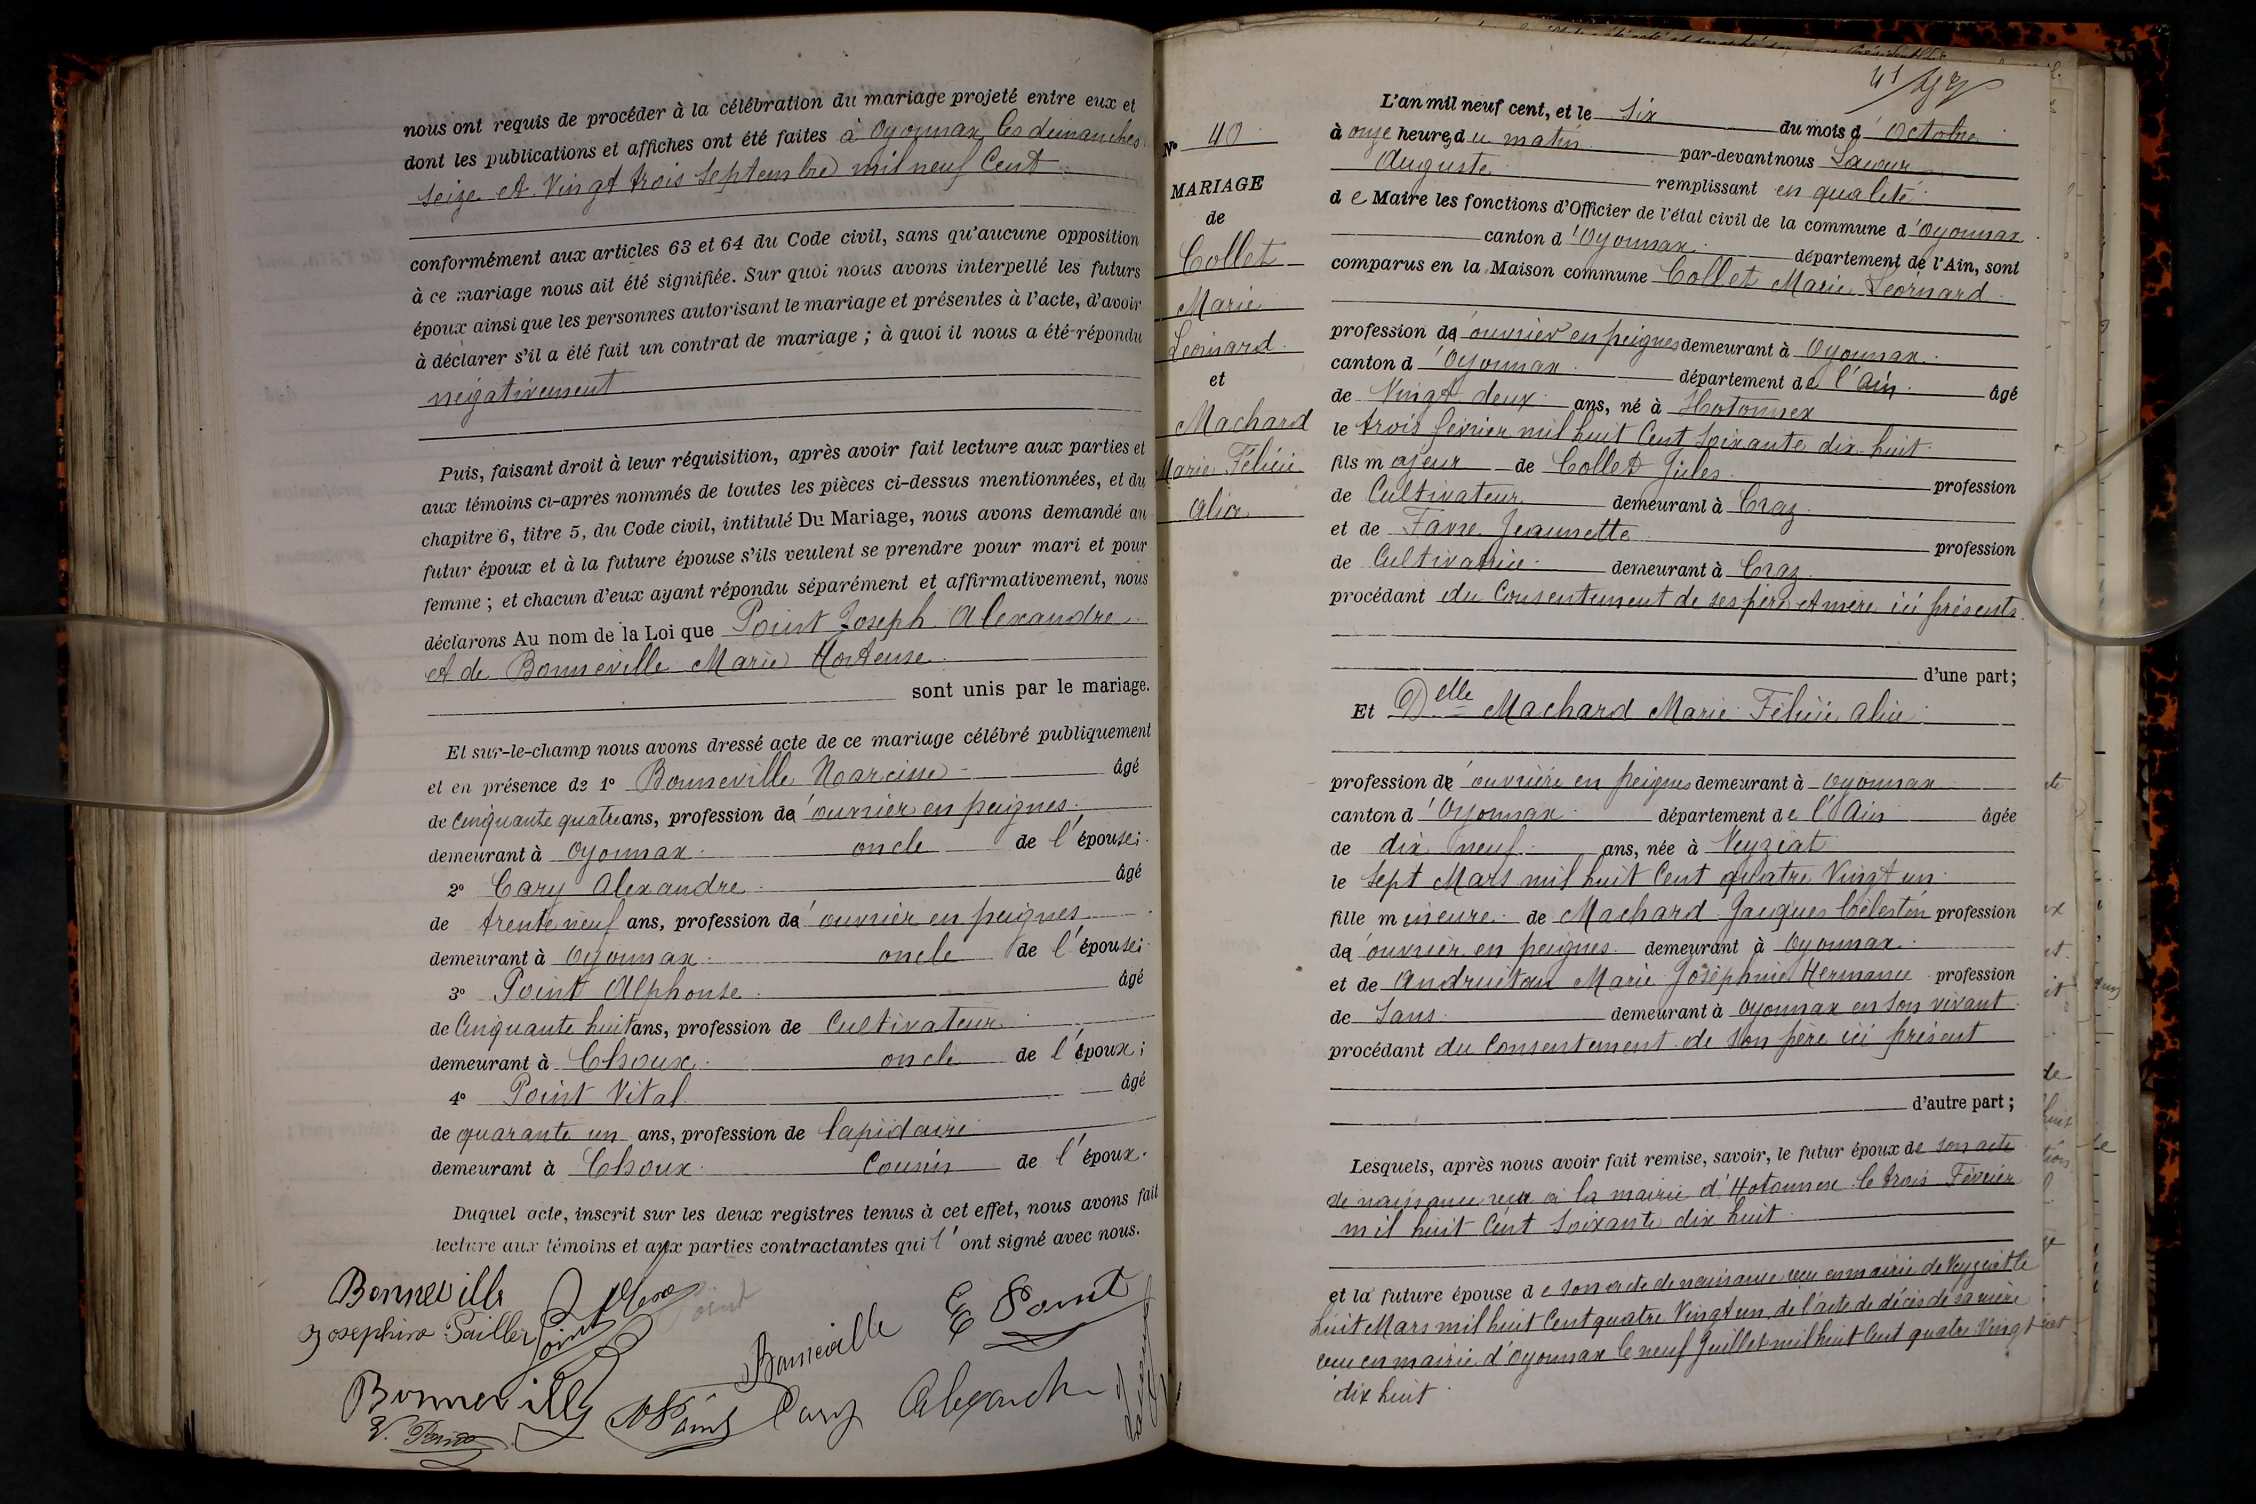 nous ont requis de procéder à la célébration du mariage projeté entre eux et
dont les publications et affiches ont été faites à Oyonnax, les dimanches
seize et Vingt trois Septembre mil neuf Cent
conformément aux articles 63 et 64 du Code civil, sans qu'aucune opposition
à ce mariage nous ait été signifiée. Sur quoi nous avons interpellé les futurs
époux ainsi que les personnes autorisant le mariage et présentes à l'acte, d'avoir
à déclarer s'il a été fait un contrat de mariage ; à quoi il nous a été répondu
négativement
Puis, faisant droit à leur réquisition, après avoir fait lecture aux parties et
aux témoins ci-après nommés de toutes les pièces ci-dessus mentionnées, et du
chapitre 6, titre 5, du Code civil, intitulé Du Mariage, nous avons demandé au
futur époux et à la future épouse s'ils veulent se prendre pour mari et pour
femme ; et chacun d'eux ayant répondu séparément et affirmativement, nous
déclarons Au nom de la Loi que Point Joseph Alexandre
et de Bonneville Marie Hortense
sont unis par le mariage.
Et sur-le-champ nous avons dressé acte de ce mariage célébré publiquement
et en présence de 1º Bonneville Narcisse âgé
de Cinquante quatre ans, profession d' ouvrier en peignes
demeurant à Oyonnax oncle de l'épouse;
2º Cary Alexandre âgé
de trente neuf ans, profession d' ouvrier en peignes
demeurant à Oyonnax oncle de l'épouse;
3º Point Alphonse âgé
de Cinquante huit ans, profession de Cultivateur
demeurant à Choux oncle de l'époux;
4º Point Vital âgé
de quarante un ans, profession de lapidaire
demeurant à Choux Cousin de l'époux.
Duquel acte, inscrit sur les deux registres tenus à cet effet, nous avons fait
lecture aux témoins et aux parties contractantes qui l'ont signé avec nous.
Bonneville
Josephine Sailler Point Alexa Point
Bonneville E Point
Bonneville N Point Cary Alexandre
V. Point
Nº 40
MARIAGE
de
Collet
Marie
Léonard
et
Machard
Marie Félicie
Alice
41
L'an mil neuf cent, et le six du mois d'Octobre
à onze heures du matin par-devant nous
Auguste remplissant en qualité
de Maire les fonctions d'Officier de l'état civil de la commune d'Oyonnax
canton d'Oyonnax département de l'Ain, sont
comparus en la Maison commune Collet Marie Léonard
profession d' ouvrier en peignes demeurant à Oyonnax
canton d'Oyonnax département de l'Ain âgé
de Vingt deux ans, né à Hotonnex
le trois février mil huit Cent Soixante dix huit
fils majeur de Collet Jules profession
de Cultivateur demeurant à Craz
et de Favre Jeannette profession
de Cultivatrice demeurant à Craz
procédant du Consentement de ses père et mère ici présents
d'une part;
Et Delle Machard Marie Félicie Alice
profession d' ouvrière en peignes demeurant à Oyonnax
canton d'Oyonnax département de l'Ain âgée
de dix neuf ans, née à Veyziat
le Sept Mars mil huit Cent quatre Vingt un
fille mineure de Machard Jacques Célestin profession
d' ouvrier en peignes demeurant à Oyonnax
et de Andruétan Marie Joséphine Hermance profession
de Sans demeurant à Oyonnax en son vivant
procédant du Consentement de son père ici présent
d'autre part;
Lesquels, après nous avoir fait remise, savoir, le futur époux de son acte
de naissance reçu à la mairie d'Hotonnex le trois Février
mil huit Cent Soixante dix huit
et la future épouse de son acte de naissance reçu en mairie de Veyziat le
huit Mars mil huit Cent quatre Vingt un, de l'acte de décès de sa mère
reçu en mairie d'Oyonnax le neuf Juillet mil huit Cent quatre Vingt
dix huit